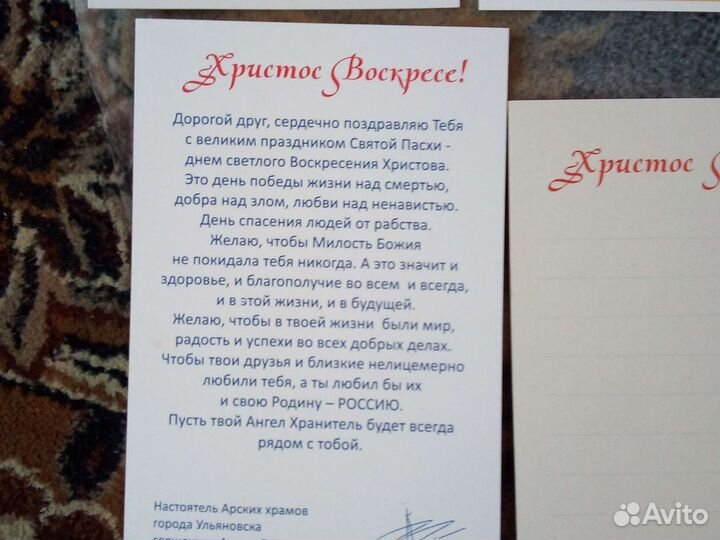 Христос Воскресе!
Дорогой друг, сердечно поздравляю Тебя
с великим праздником Святой Пасхи -
днем светлого Воскресения Христова.
Это день победы жизни над смертью,
добра над злом, любви над ненавистью.
День спасения людей от рабства.
Желаю, чтобы Милость Божия
не покидала тебя никогда. А это значит и
здоровье, и благополучие во всем и всегда,
и в этой жизни, и в будущей.
Желаю, чтобы в твоей жизни были мир,
радость и успехи во всех добрых делах.
Чтобы твои друзья и близкие нелицемерно
любили тебя, а ты любил бы их
и свою Родину – РОССИЮ.
Пусть твой Ангел Хранитель будет всегда
рядом с тобой.
Настоятель Арских храмов
города Ульяновска
Христос
Avito